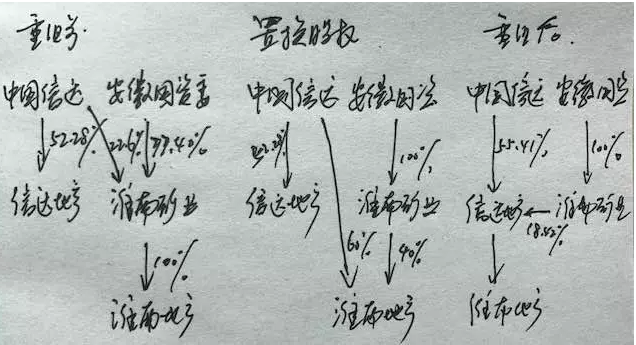 重组前. 置换股权 重组后.
中国信达 安徽国资委 中国信达 安徽国资 中国信达 安徽国资
52.28% 22.6% 77.40% 52.28% 100% 55.41% 100%
信达地产 淮南矿业 信达地产 淮南矿业 信达地产 淮南矿业
18.62%
100% 60% 40%
淮南地产 淮南地产 淮南地产